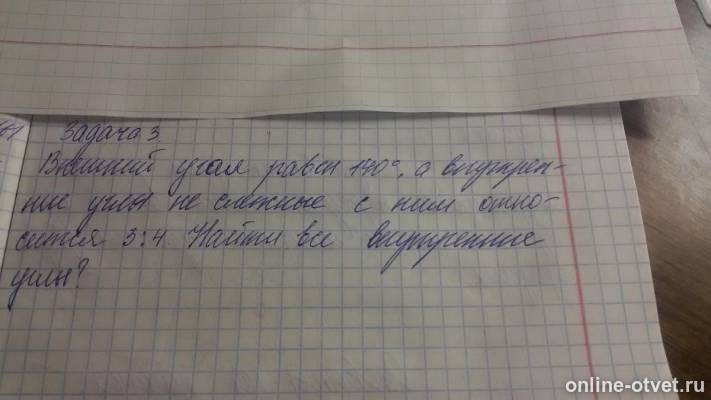 Задача 3
Внешний угол равен 140°, а внутрен-
ние углы не смежные с ним отно-
сится 3:4 Найти все внутренние
углы?
online-otvet.ru